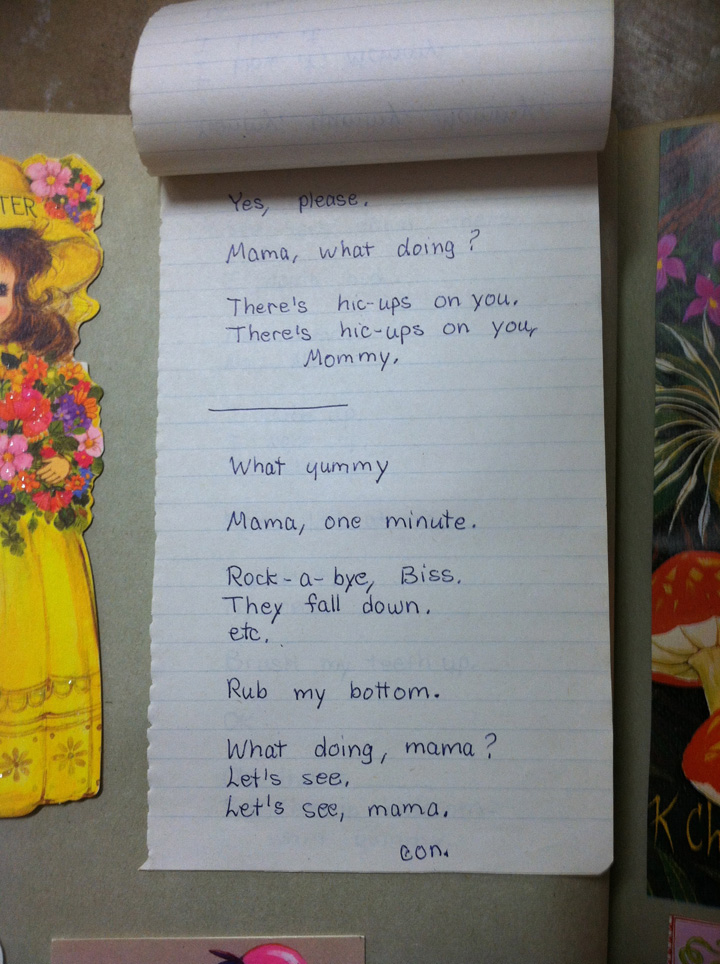 Yes, please.
Mama, what doing?
There's hic-ups on you.
There's hic-ups on you,
Mommy.
What yummy
Mama, one minute.
Rock-a-bye, Biss.
They fall down.
etc.
Rub my bottom.
What doing, mama?
Let's see,
Let's see, mama.
con.
TER
K Ch